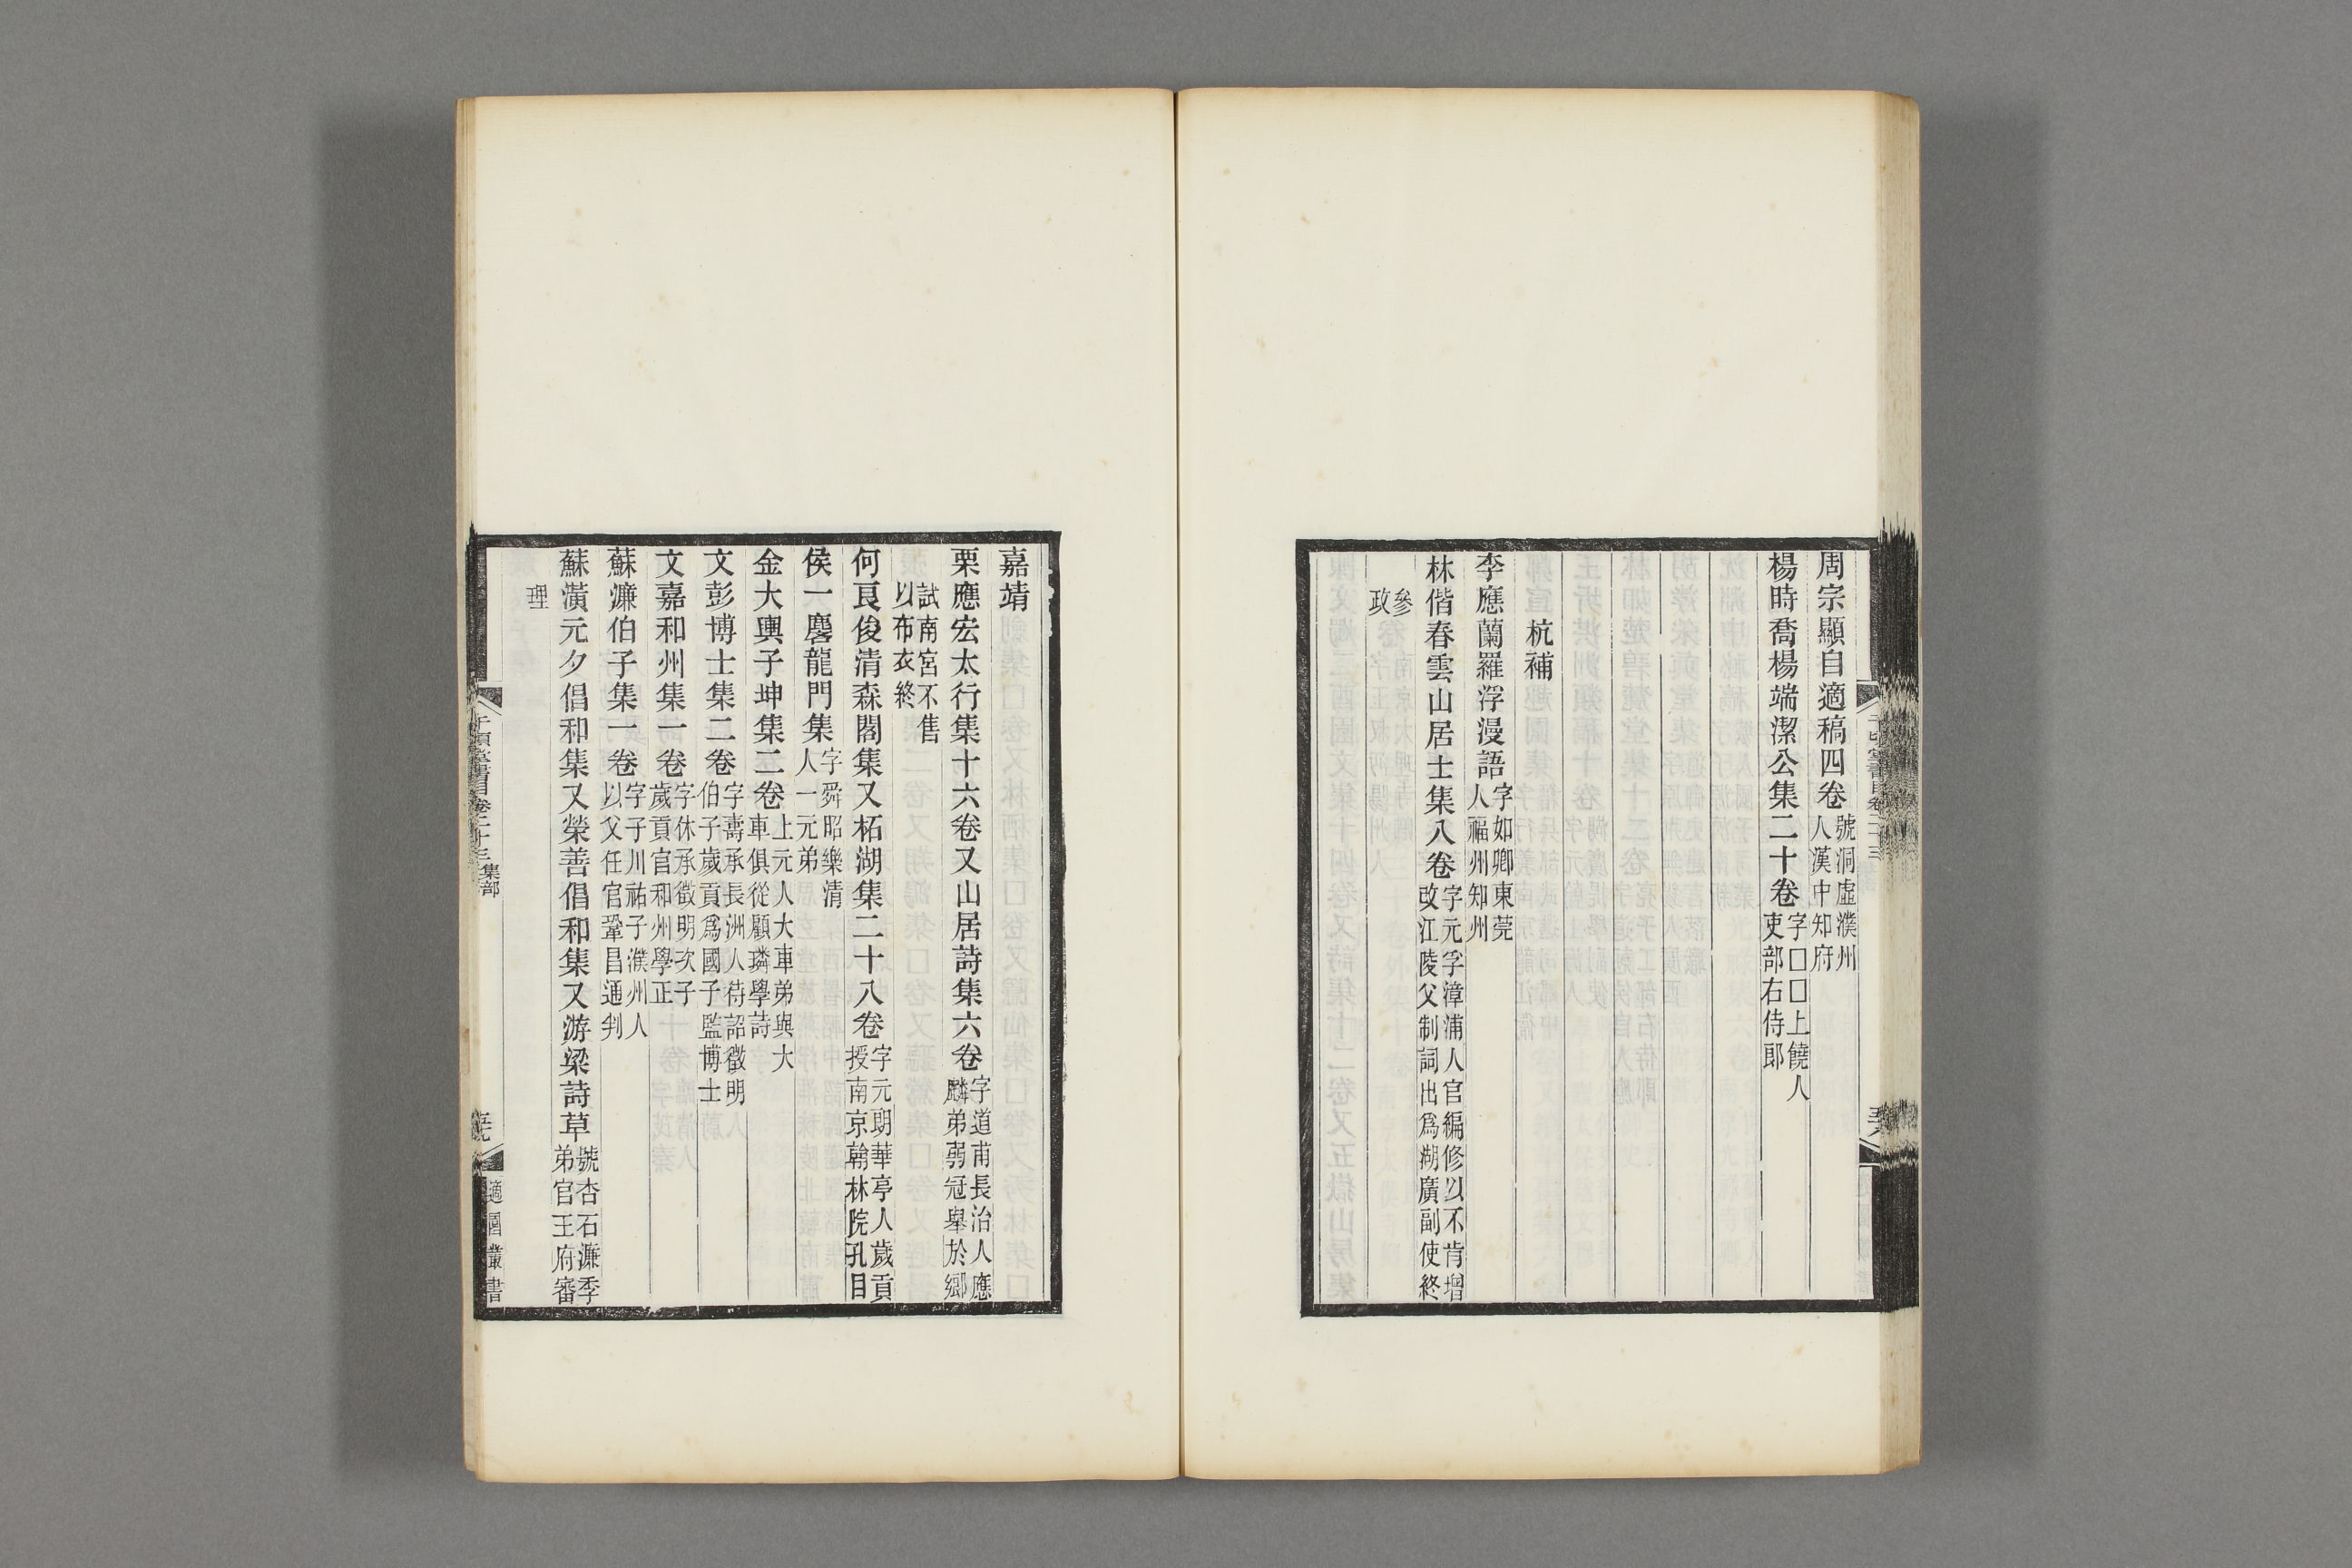 周宗顯自適稿四卷 號洞虛濮州人漢中知府
楊時喬楊端潔公集二十卷 字□□上饒人吏部右侍郎
杭補
李應蘭羅浮漫語 字如卿東莞人福州知州
林偕春雲山居士集八卷 字元孚漳浦人官編修以不肯增改江陵父制詞出爲湖廣副使終
參政
嘉靖
栗應宏太行集十六卷又山居詩集六卷 字道甫長治人應麟弟弱冠舉於鄉
試南宮不售以布衣終
何良俊清森閣集又柘湖集二十八卷 字元朗華亭人歲貢授南京翰林院孔目
侯一麐龍門集 字舜昭樂清人一元弟
金大輿子坤集二卷 上元人大車弟與大車俱從顧璘學詩
文彭博士集二卷 字壽承長洲人待詔徵明伯子歲貢爲國子監博士
文嘉和州集一卷 字休承徵明次子歲貢官和州學正
蘇濂伯子集一卷 字子川祐子濮州人以父任官鞏昌通判
蘇潢元夕倡和集又榮善倡和集又游梁詩草 號杏石濂季弟官王府審
理
千頃堂書目卷二十三 集部
適園叢書